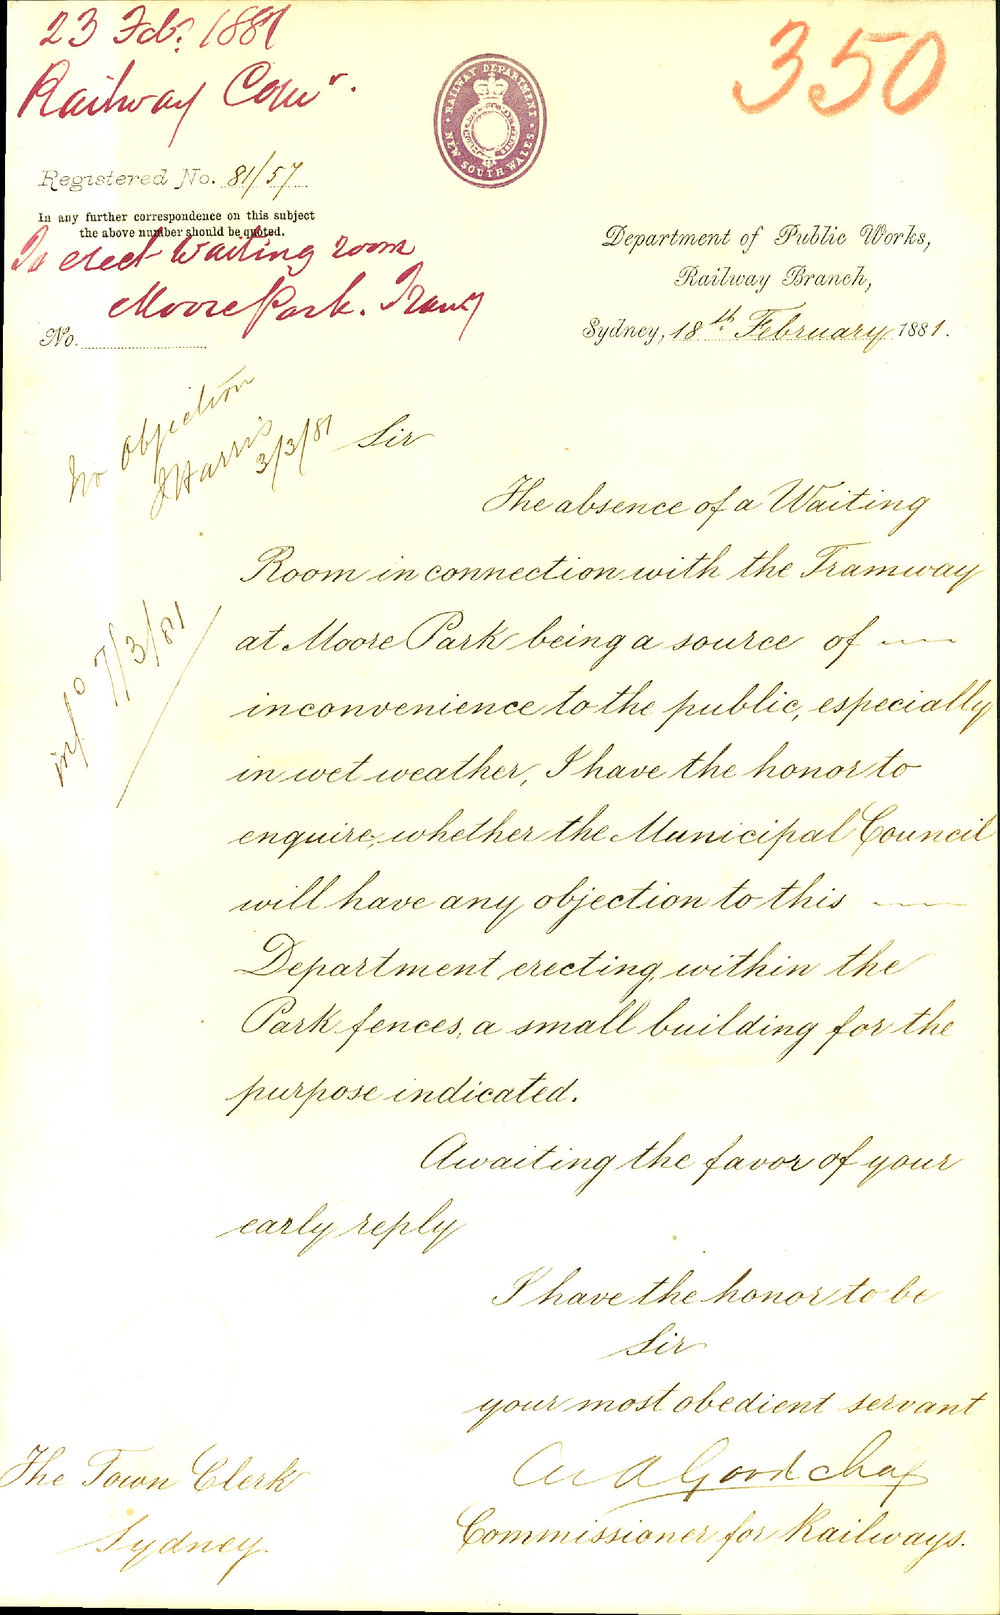 23 Feb? 1881
Railway Comr.
350
RAILWAY DEPARTMENT
NEW SOUTH WALES
Registered No. 81/57
In any further correspondence on this subject
the above number should be quoted.
To erect Waiting room
Moore Park. Tramy
No.
Department of Public Works,
Railway Branch,
Sydney, 18th February 1881.
No Objection
J Harris
3/3/81
infd 7/3/81
Sir
The absence of a Waiting
Room in connection with the Tramway
at Moore Park being a source of —
inconvenience to the public, especially
in wet weather, I have the honor to
enquire, whether the Municipal Council
will have any objection to this —
Department erecting, within the
Park fences, a small building for the
purpose indicated.
Awaiting the favor of your
early reply
I have the honor to be
Sir
your most obedient servant
Ch A Goodchap
Commissioner for Railways.
The Town Clerk
Sydney.